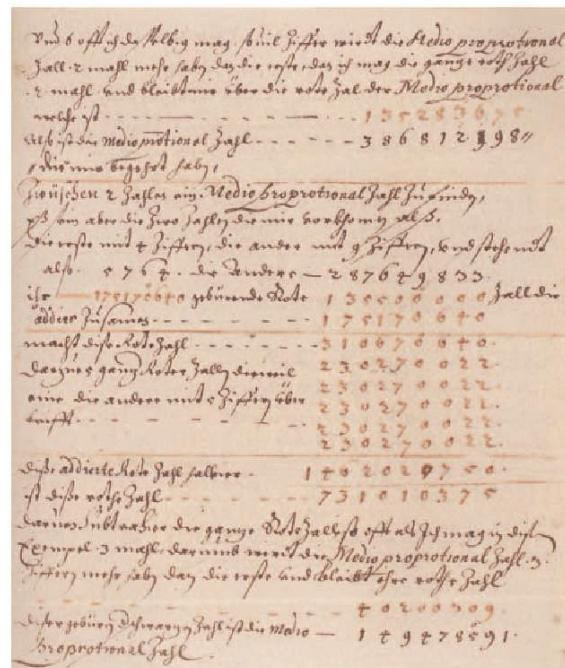 Und so offt ich daselbig mag, souil Ziffer wirdt die Medio proprotional
Zall 2 mahl mehr haben dan die erste, dan ich mag die gantze roth Zahl
2 mahl und bleibt mir über die rote Zal der Medio proprotional
welche ist - - - - - - 1 3 5 2 8 3 6 7 5
Also ist die Medio protional Zahl - - - - - - 3 8 6 8 1 2 1 9 8
die mir begehrt haben,
Zwischen 2 Zahlen ein Medio proprotional Zahl zu finden,
sein aber die zwo Zahlen die mir vorkhomen als.
Die erste mit 4 Ziffern, die ander mit 9 Ziffern, und stehen mit
also. 5 7 6 4 . die Andere — 2 8 7 6 4 9 8 3 3 .
ihr 175170640 gebürende Rote 1 3 5 5 0 0 0 0 0 Zall die
addier Zusamen - - - - - - 1 7 5 1 7 0 6 4 0
macht dise Rote Zahl - - - - - 3 1 0 6 7 0 6 4 0 .
Darzue gantz Roter Zalln dieweil 2 3 0 2 7 0 0 2 2 .
eine die andere mit 5 Ziffern über 2 3 0 2 7 0 0 2 2 .
trifft - - - - - - 2 3 0 2 7 0 0 2 2 .
2 3 0 2 7 0 0 2 2 .
2 3 0 2 7 0 0 2 2 .
dise addierte Rote Zahl halbier - 1 4 6 2 0 2 0 7 5 0 .
ist dise rothe Zahl - - - - - 7 3 1 0 1 0 3 7 5
daruon Subtrahier die gantze Rote Zall so offt als Ich mag in disem
Exempel 3 mahl, darumb wirdt die Medio proprotional Zahl 3
Ziffern mehr haben dan die erste und bleibt ihre rothe Zahl
- - - - - - 4 0 2 0 0 3 0 9
diser gebüren Schwartzen Zahl ist die Medio — 1 4 9 4 7 8 5 9 1 .
Proprotional Zahl